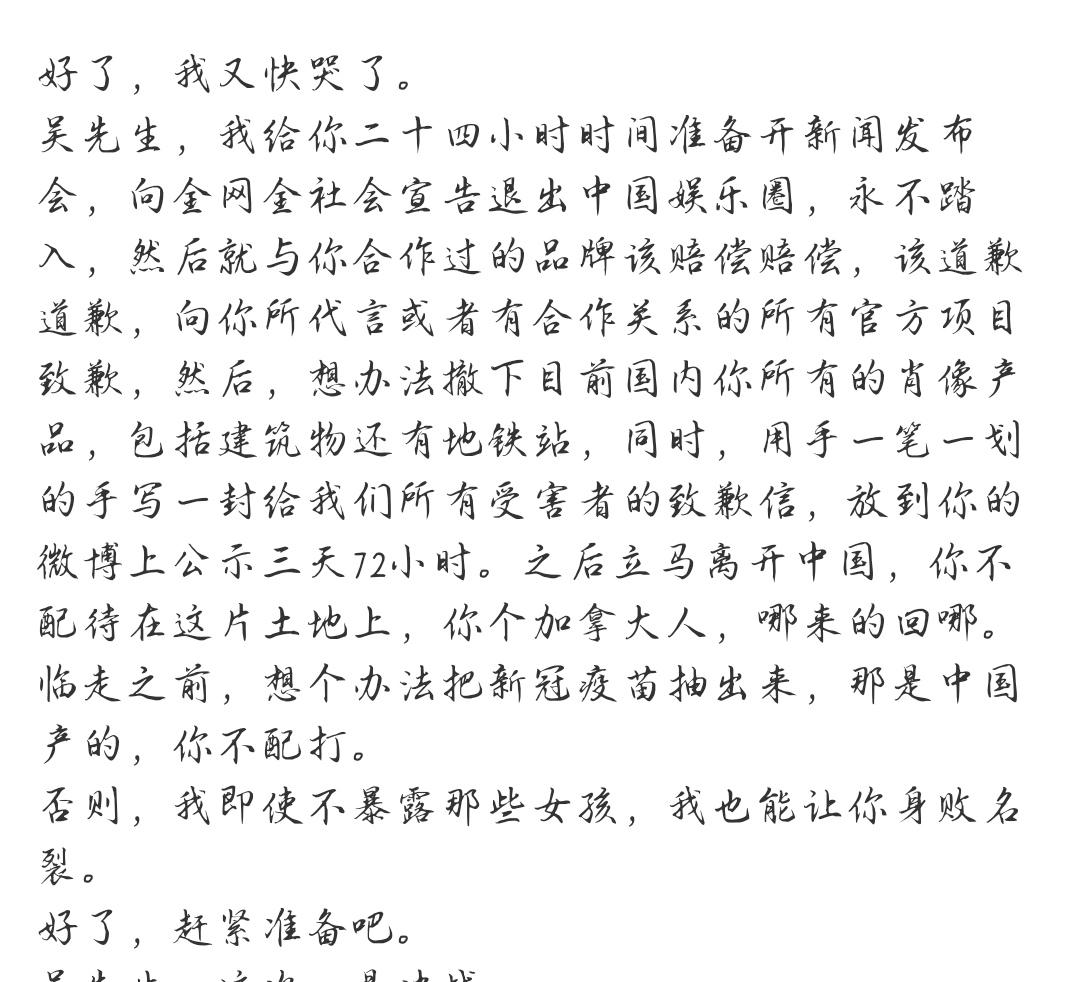 好了，我又快哭了。
吴先生，我给你二十四小时时间准备开新闻发布
会，向全网全社会宣告退出中国娱乐圈，永不踏
入，然后就与你合作过的品牌该赔偿赔偿，该道歉
道歉，向你所代言或者有合作关系的所有官方项目
致歉，然后，想办法撤下目前国内你所有的肖像产
品，包括建筑物还有地铁站，同时，用手一笔一划
的手写一封给我们所有受害者的致歉信，放到你的
微博上公示三天72小时。之后立马离开中国，你不
配待在这片土地上，你个加拿大人，哪来的回哪。
临走之前，想个办法把新冠疫苗抽出来，那是中国
产的，你不配打。
否则，我即使不暴露那些女孩，我也能让你身败名
裂。
好了，赶紧准备吧。